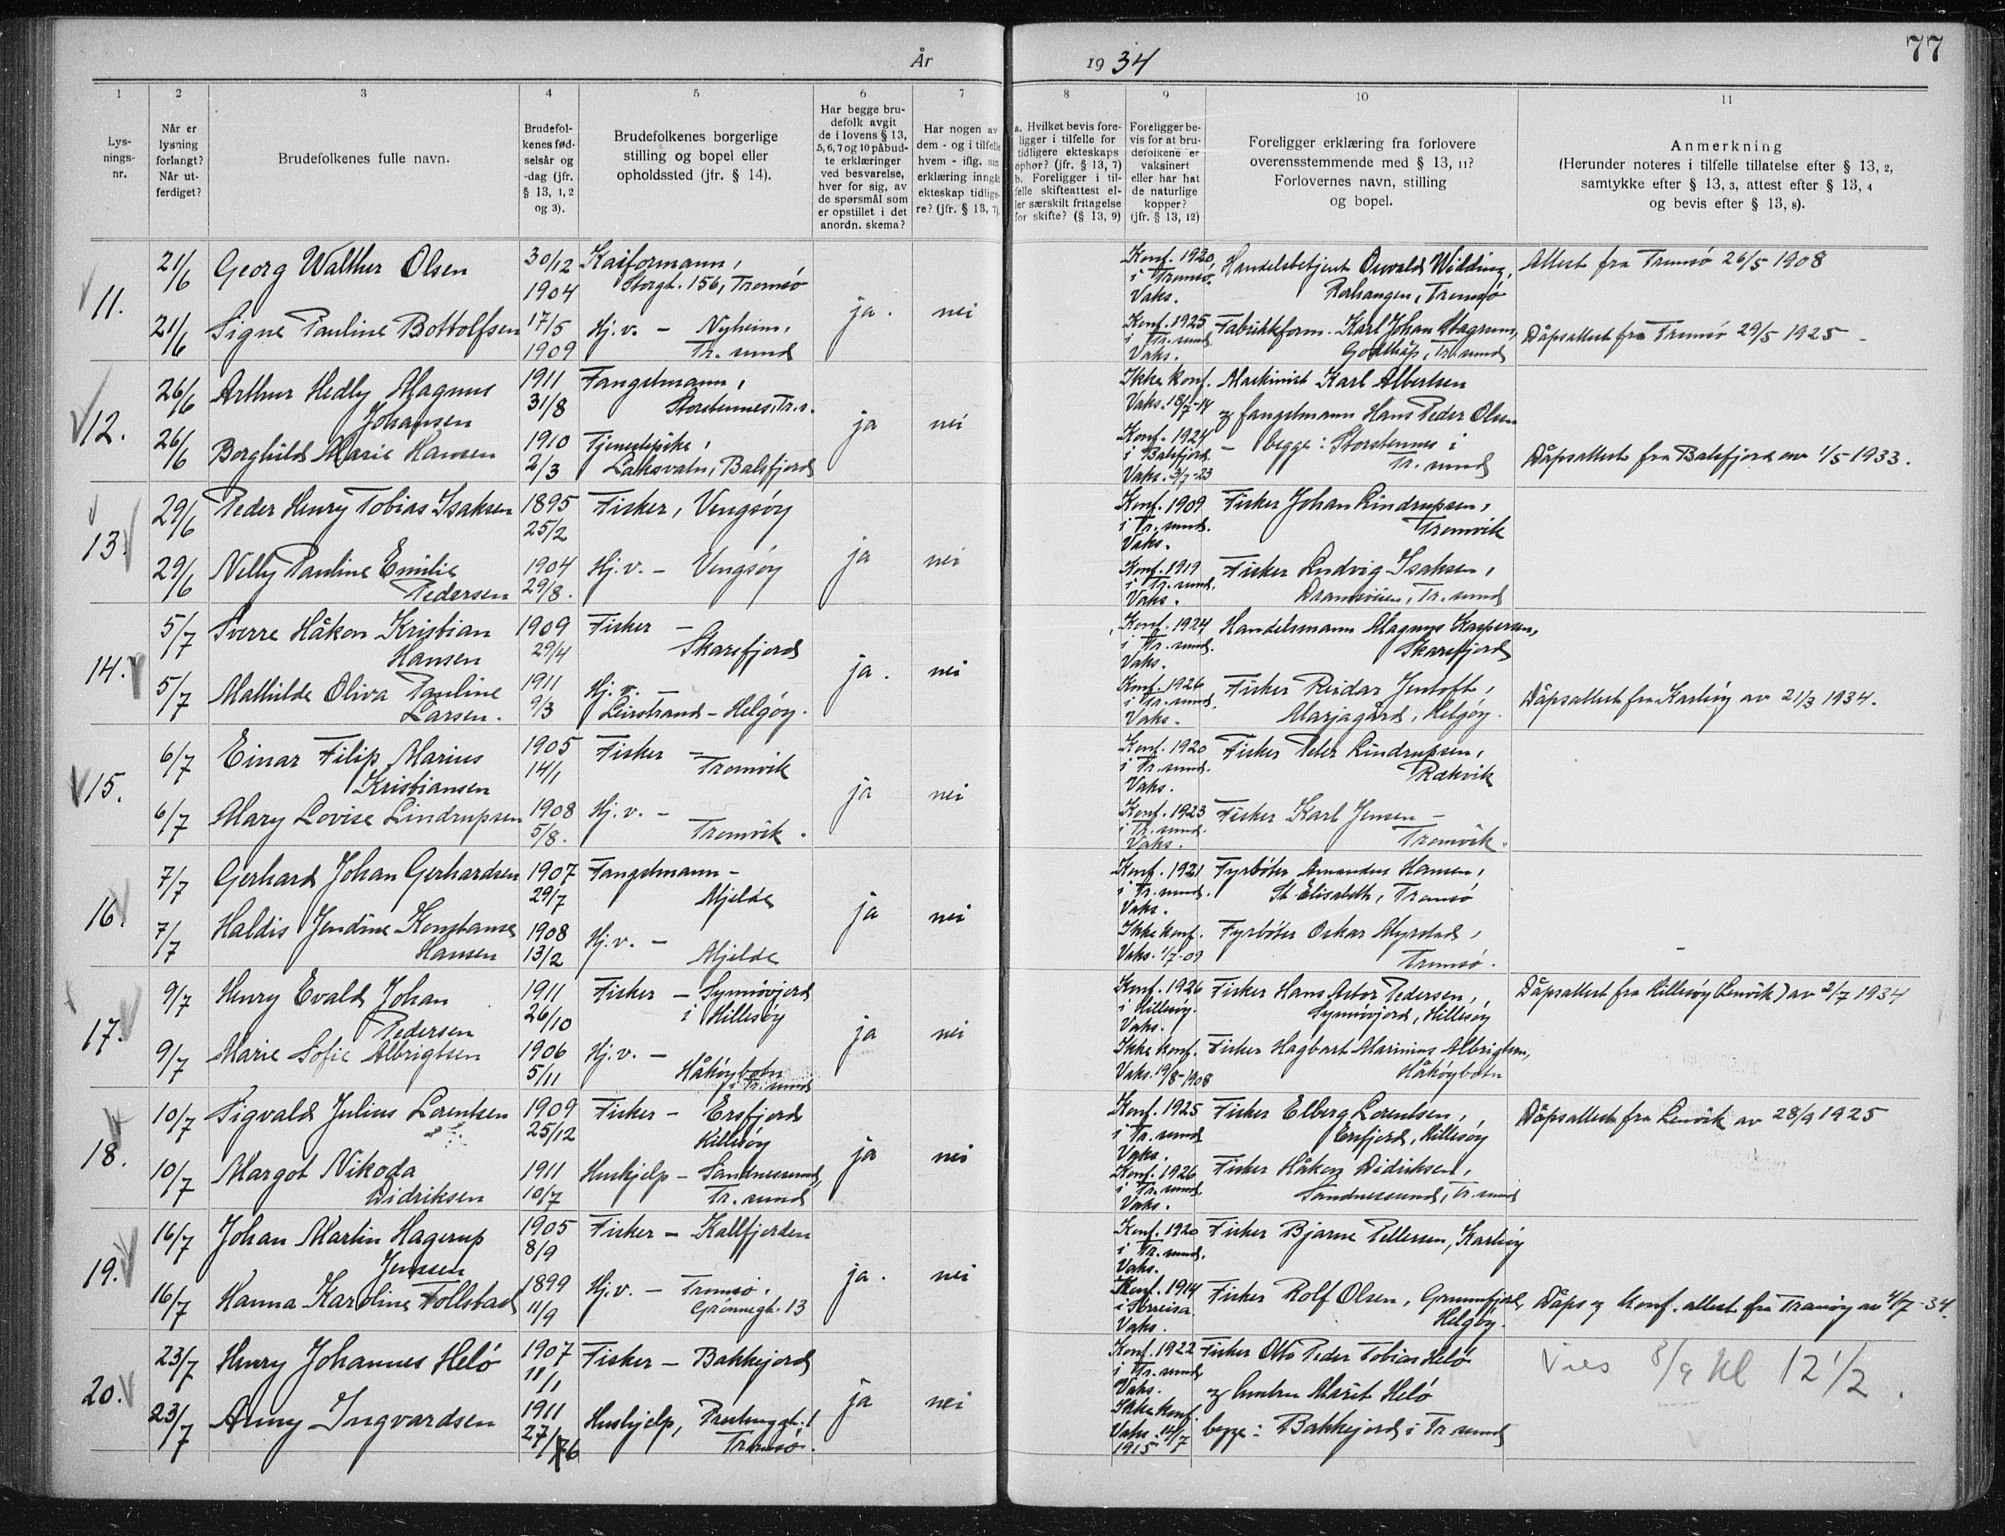 77
År
19 34
1 2 3 4 5 6 7 8 9 10 11
Lys-
nings-
nr.
Når er
lysning
forlangt?
Når ut-
ferdiget?
Brudefolkenes fulle navn.
Brudefol-
kenes fød-
selsår og
-dag (jfr.
§ 13, 1, 2
og 3).
Brudefolkenes borgerlige
stilling og bopel eller
opholdssted (jfr. § 14).
Har begge bru-
defolk avgit
de i lovens § 13,
5, 6, 7 og 10 påbud-
te erklæringer
ved besvarelse,
hver for sig, av
de spørsmål som
er opstillet i det
anordn. skema?
Har nogen av
dem - og i tilfelle
hvem - iflg. sin
erklæring inngåt
ekteskap tidlige-
re? (jfr. § 13, 7).
a. Hvilket bevis fore-
ligger i tilfelle for
tidligere ekteskaps
ophør? (jfr. § 13, 7)
b. Foreligger i til-
felle skifteattest el-
ler særskilt fritagelse
for skifte? (§ 13, 9)
Foreligger be-
vis for at bru-
defolkene er
vaksinert
eller har hat
de naturlige
kopper?
(jfr. § 13, 12)
Foreligger erklæring fra forlovere
overensstemmende med § 13, 11?
Forlovernes navn, stilling
og bopel.
Anmerkning
(Herunder noteres i tilfelle tillatelse efter § 13, 2,
samtykke efter § 13, 3, attest efter § 13, 4
og bevis efter § 13, 8).
11.
21/6 Georg Walther Olsen 30/12 1904 Kaiformann,
Storgt. 156, Tromsø
ja. nei
Konf. 1920,
i Tromsø.
Vaks.
Handelsbetjent Osvald Wilding,
Tromsø
Attest fra Tromsø 26/5 1908
21/6 Signe Pauline Bottolfsen 17/5 1909 Hj.v. - Nyheim,
Tr. sund
Konf. 1925
i Tr. sund
Vaks.
Fabrikkform. Karl Johan
Godthåp, Tr. sund
Dåpsattest fra Tromsø 29/5 1925
12.
26/6 Arthur Hedly Magnus
Johansen
1911 31/8 Fangstmann,
Storstennes, Tr.s.
ja nei
Ikke konf.
Vaks. 18/7-14
Maskinist Karl Albertsen
og fangstmann Hans Peder Olsen
26/6 Borghild Marie Hansen 1910 2/3 Tjenestepike,
Laksvatn, Balsfjord
Konf. 1924
i Balsfjord
Vaks. 3/7-23
- begge: Storstennes i
Tr. sund
Dåpsattest fra Balsfjord av 1/5-1933.
13.
29/6 Peder Henry Tobias Isaksen 1895 25/2 Fisker, Vengsøy
ja nei
Konf. 1909
i Tr. sund.
Vaks.
Fisker Johan Lindrupsen,
Tromvik
29/6 Nelly Pauline Emilie
Pedersen
1904 29/8. Hj.v. - Vengsøy
Konf. 1919
i Tr. sund.
Vaks.
Fisker Ludvig Isaksen,
Tr. sund
14.
5/7 Sverre Håkon Kristian
Hansen
1909 29/4 Fisker -
Skarsfjord
ja. nei
Konf. 1924
i Tr. sund.
Vaks.
Handelsmann Magnus Kaspersen,
Skarsfjord
5/7 Mathilde Oliva Pauline
Larsen.
1911 9/3 Hj.v.
Leirstrand - Helgøy.
Konf. 1926
i Tr. sund.
Vaks.
Fisker Reidar Jentoft,
Marjagård, Helgøy.
Dåpsattest fra Karlsøy av 21/3 1934.
15.
6/7 Einar Filip Marius
Kristiansen
1905 14/1 Fisker -
Tromvik
ja nei
Konf. 1920
i Tr. sund.
Vaks.
Fisker Peter Lindrupsen,
Rækvik
6/7 Mary Lovise Lindrupsen 1908 5/8. Hj.v. -
Tromvik.
Konf. 1923
i Tr. sund.
Vaks.
Fisker Karl Jensen -
Tromvik.
16.
7/7 Gerhard Johan Gerhardsen 1907 29/7 Fangstmann -
Mjelde
ja nei
Konf. 1921
i Tr. sund.
Vaks.
Fyrbøter Amandus Hansen,
St. Elisabeth, Tromsø
7/7 Haldis Jendine Konstanse
Hansen
1908 13/2 Hj.v. -
Mjelde
Ikke konf.
Vaks. 1/7-09
Fyrbøter Oskar Myrstad,
Tromsø.
17.
9/7 Henry Evald Johan
Pedersen
1911 26/10 Fisker -
i Hillesøy
ja nei
Konf. 1926
i Hillesøy.
Vaks.
Fisker Hans Astor Pedersen,
Hillesøy
Dåpsattest fra Hillesøy (Lenvik) av 2/7 1934
9/7 Marie Sofie Albrigtsen 1906 5/11 Hj.v. -
Håkøybotn
i Tr. sund
Ikke konf.
Vaks. 19/8-1908
Fisker Hagbart Marinius Albrigtsen,
Håkøybotn
18.
10/7 Sigvald Julius Lorentsen 1909 25/12 Fisker - Ersfjord
Hillesøy
ja nei
Konf. 1925
i Tr. sund
Vaks.
Fisker Elberg Lorentsen,
Ersfjord, Hillesøy
Dåpsattest fra Lenvik av 28/9 1925
10/7 Margot Nikoda
Didriksen
1911 10/7 Hushjelp - Sandnessund,
Tr. sund
Konf. 1926
i Tr. sund
Vaks.
Fisker Håkon Didriksen,
Sandnessund, Tr. sund
19.
16/7 Johan Martin Hagerup
Jensen
1905 8/9 Fisker - Kallfjorden
ja. nei
Konf. 1920
i Tr. sund.
Vaks.
Fisker Bjarne Pettersen, Karlsøy
16/7 Hanna Karoline Tollstad 1899 11/9 Hj.v. - Tromsø,
Grønnegt. 13
Konf. 1914
i Sørreisa
Vaks.
Fisker Rolf Olsen, Grunnfjord,
Helgøy.
Dåps og Konf. attest fra Tranøy av 4/7-34.
20.
23/7 Henry Johannes Helø 1907 11/1 Fisker - Bakkejord
ja nei
Konf. 1922
i Tr. sund
Vaks.
Fisker Otto Peder Tobias Helø
og Marit Helø
Vies 8/9 kl 12 1/2.
23/7 Anny Ingvardsen 1911 27/6 Hushjelp,
Tromsø.
Ikke konf.
Vaks. 14/7
1915
begge: Bakkejord i Tr. sund